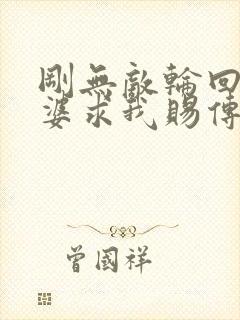 剛無敵輪回
婆求我賜傳
曾國祥